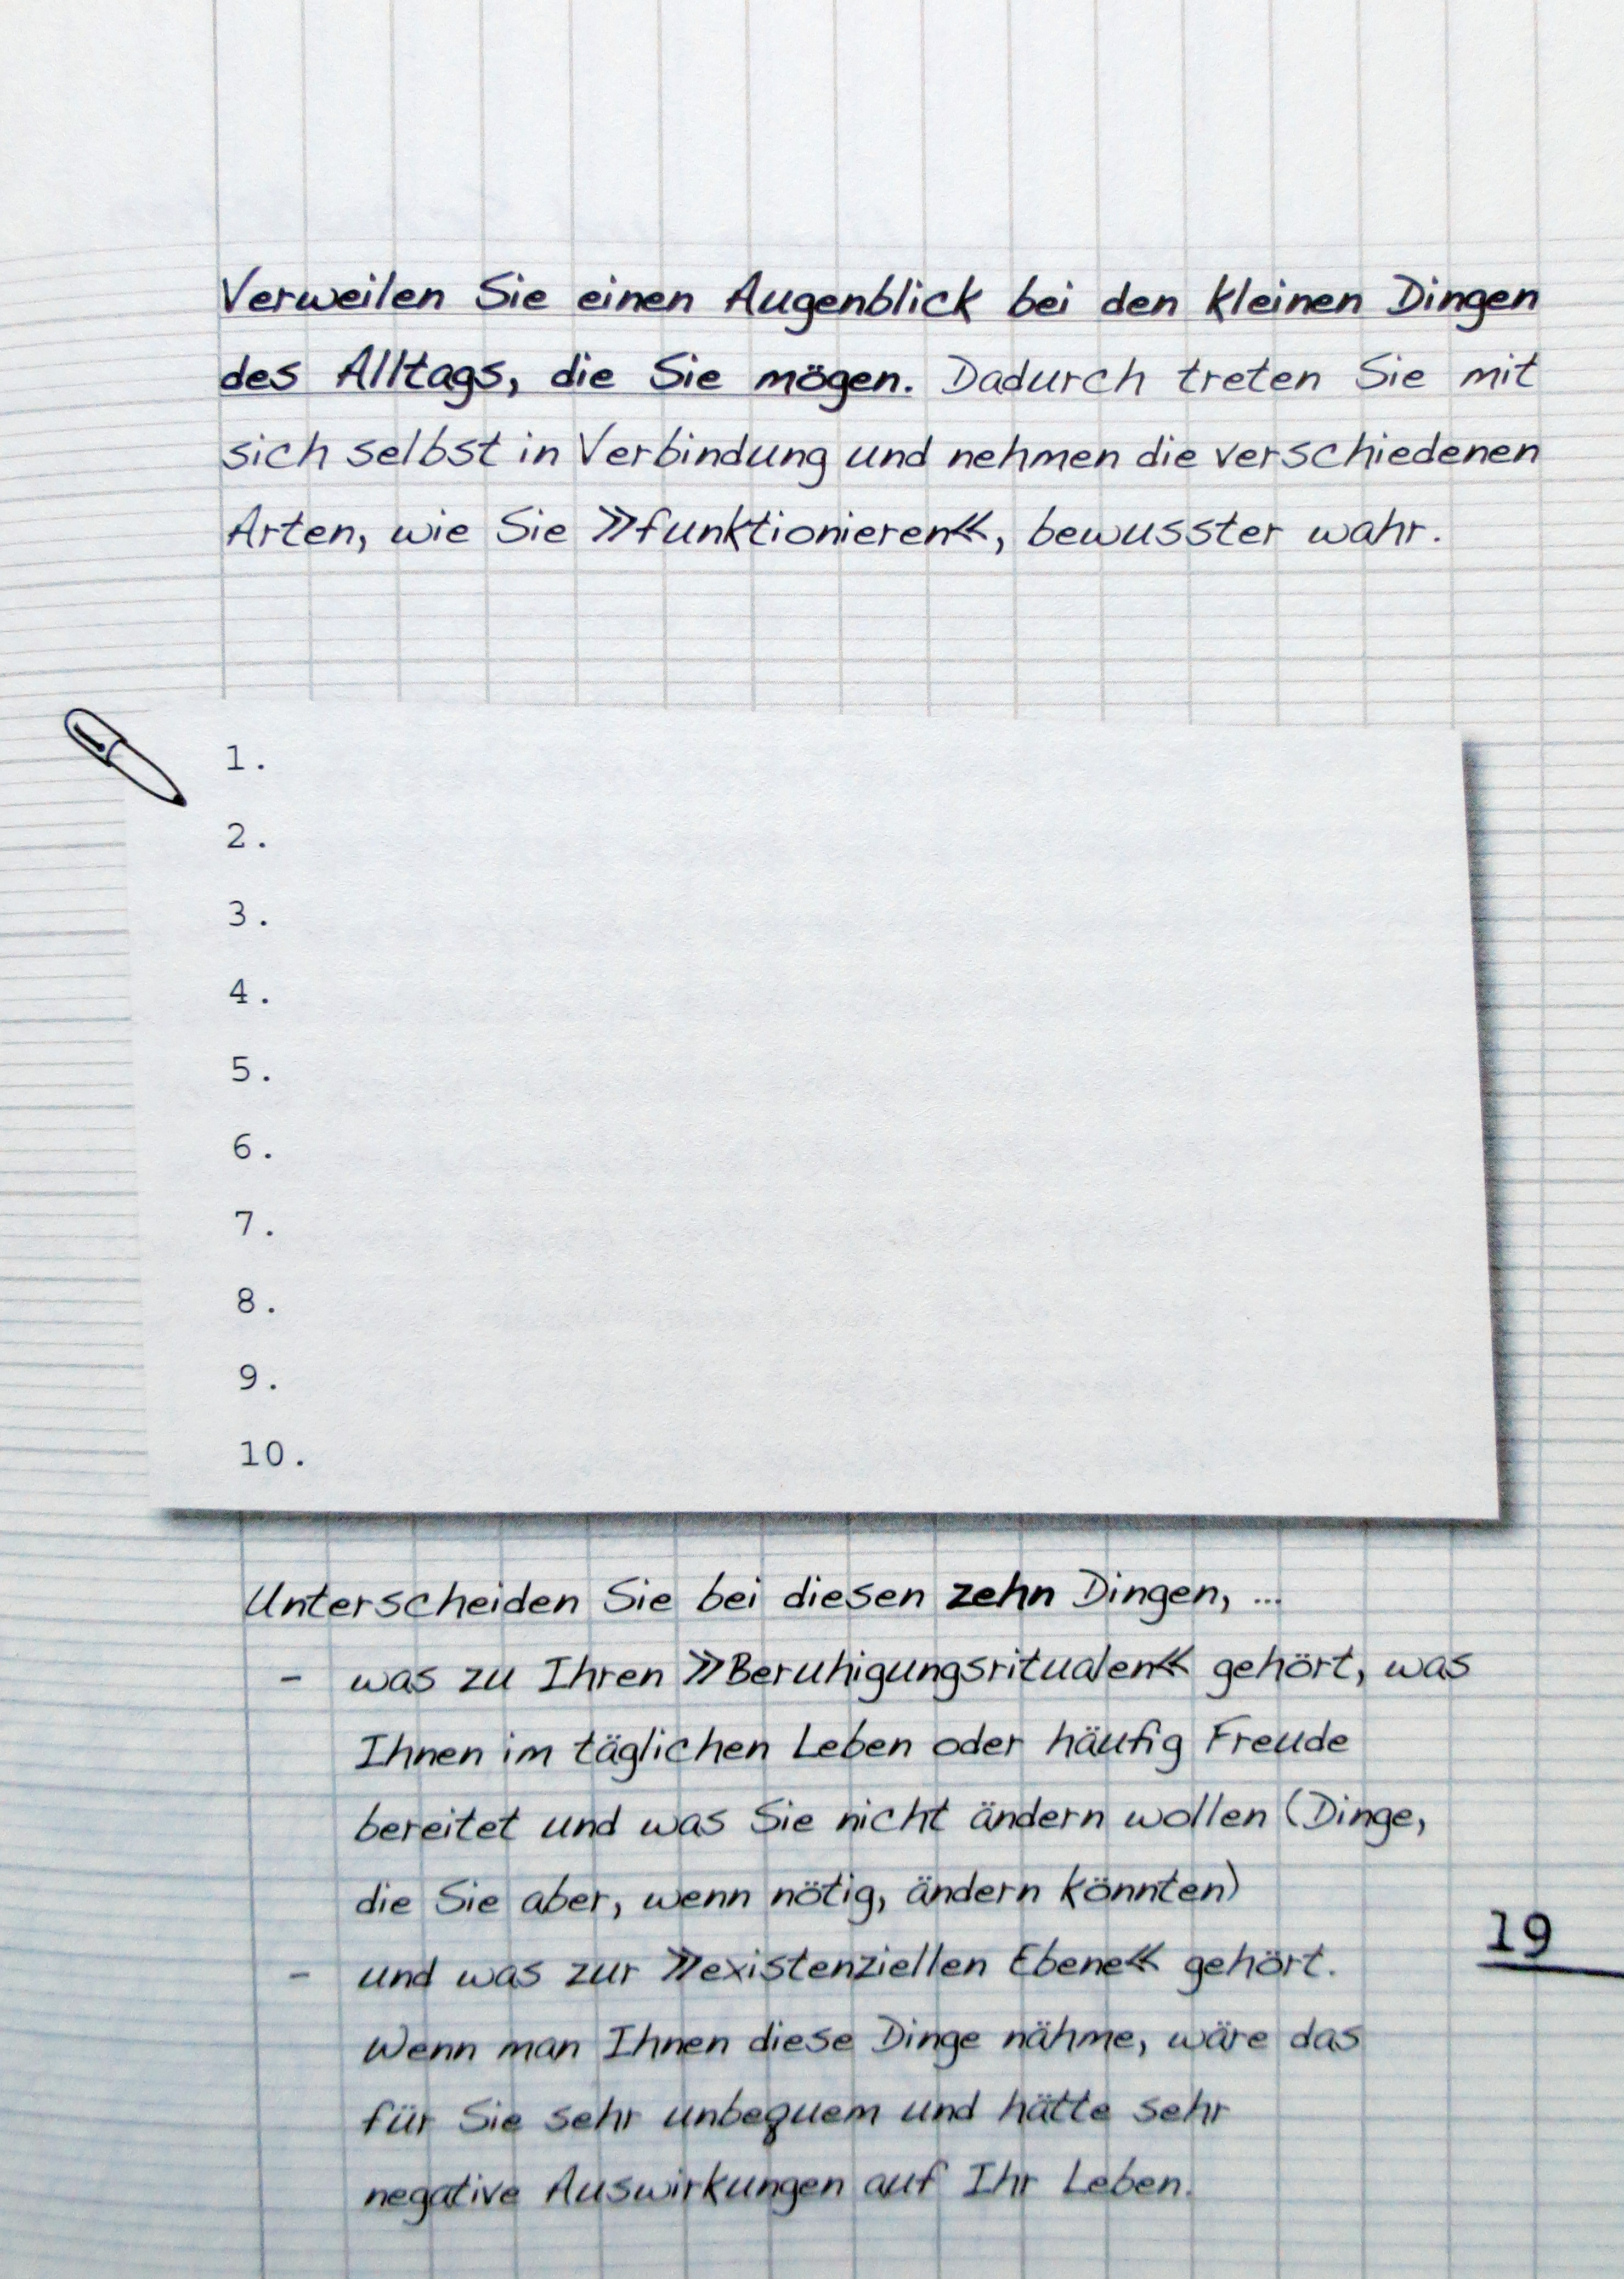 Verweilen Sie einen Augenblick bei den kleinen Dingen
des Alltags, die Sie mögen. Dadurch treten Sie mit
sich selbst in Verbindung und nehmen die verschiedenen
Arten, wie Sie »funktionieren«, bewusster wahr.
1.
2.
3.
4.
5.
6.
7.
8.
9.
10.
Unterscheiden Sie bei diesen zehn Dingen, ...
- was zu Ihren »Beruhigungsritualen« gehört, was
Ihnen im täglichen Leben oder häufig Freude
bereitet und was Sie nicht ändern wollen (Dinge,
die Sie aber, wenn nötig, ändern könnten)
- und was zur »existenziellen Ebene« gehört.
Wenn man Ihnen diese Dinge nähme, wäre das
für Sie sehr unbequem und hätte sehr
negative Auswirkungen auf Ihr Leben.
19